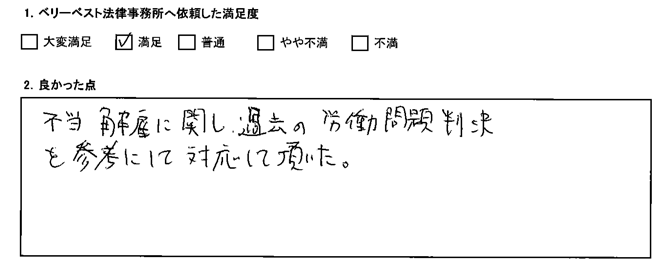 1. ベリーベスト法律事務所へ依頼した満足度
□ 大変満足 ☑ 満足 □ 普通 □ やや不満 □ 不満
2. 良かった点
不当解雇に関し過去の労働問題判決
を参考にして対応して頂いた。